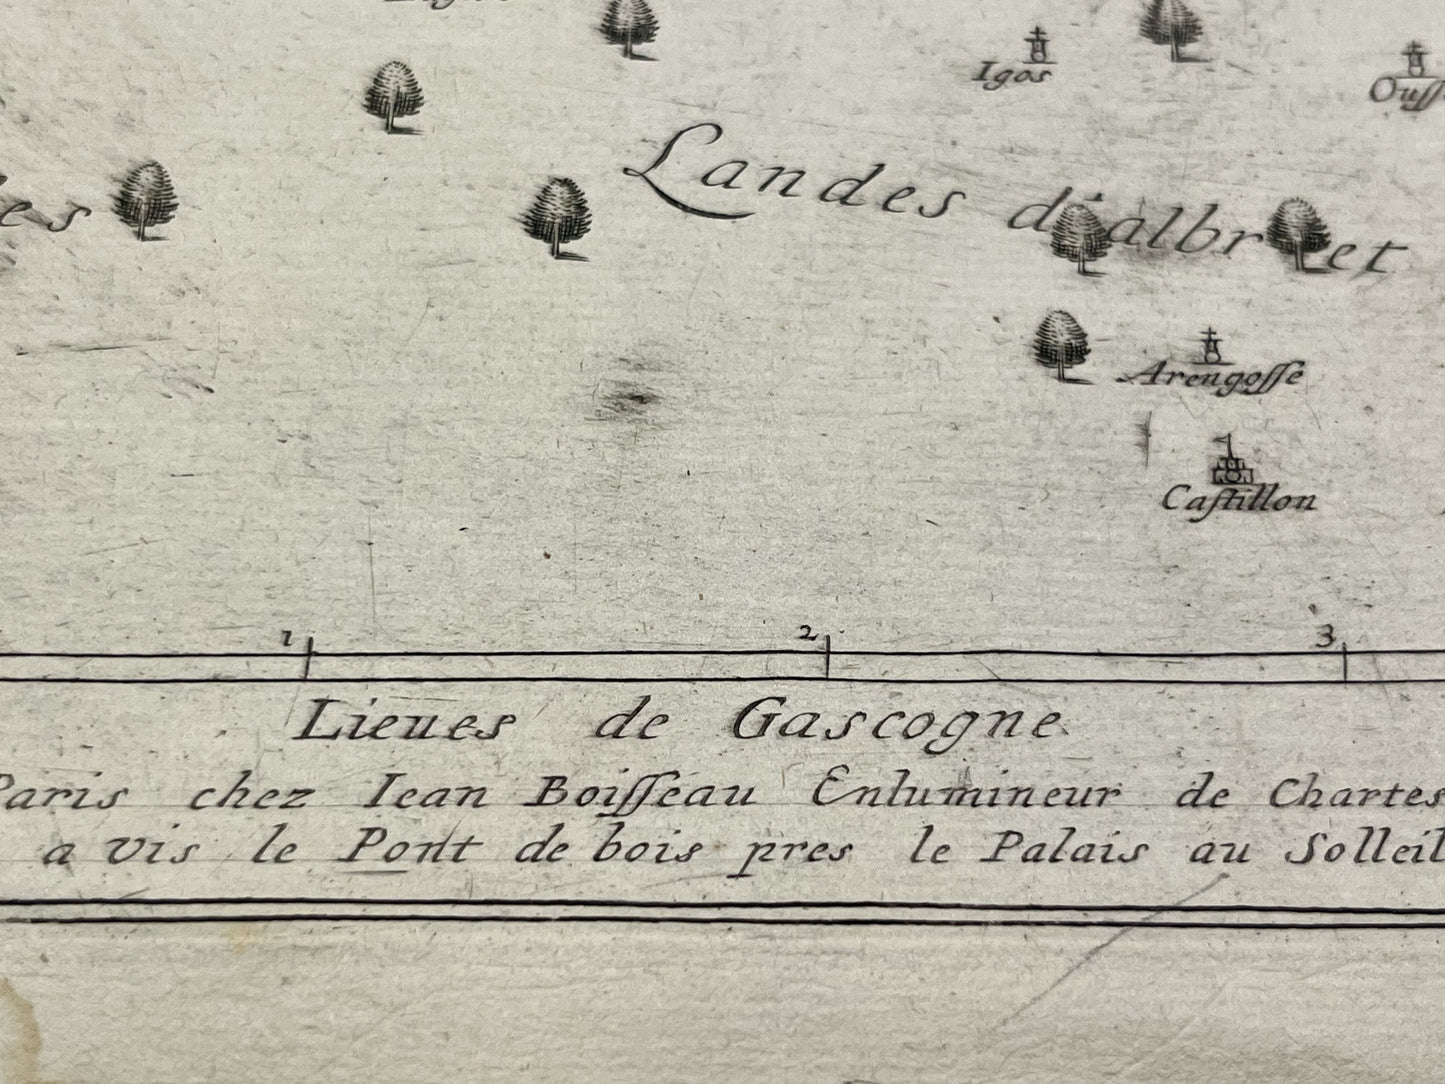 Igos
Landes d'albret
es
Arengoſſe
Caſtillon
1 2 3
Lieues de Gascogne
Paris chez Iean Boiſſeau Enlumineur de Chartes
a vis le Pont de bois pres le Palais au Solleil